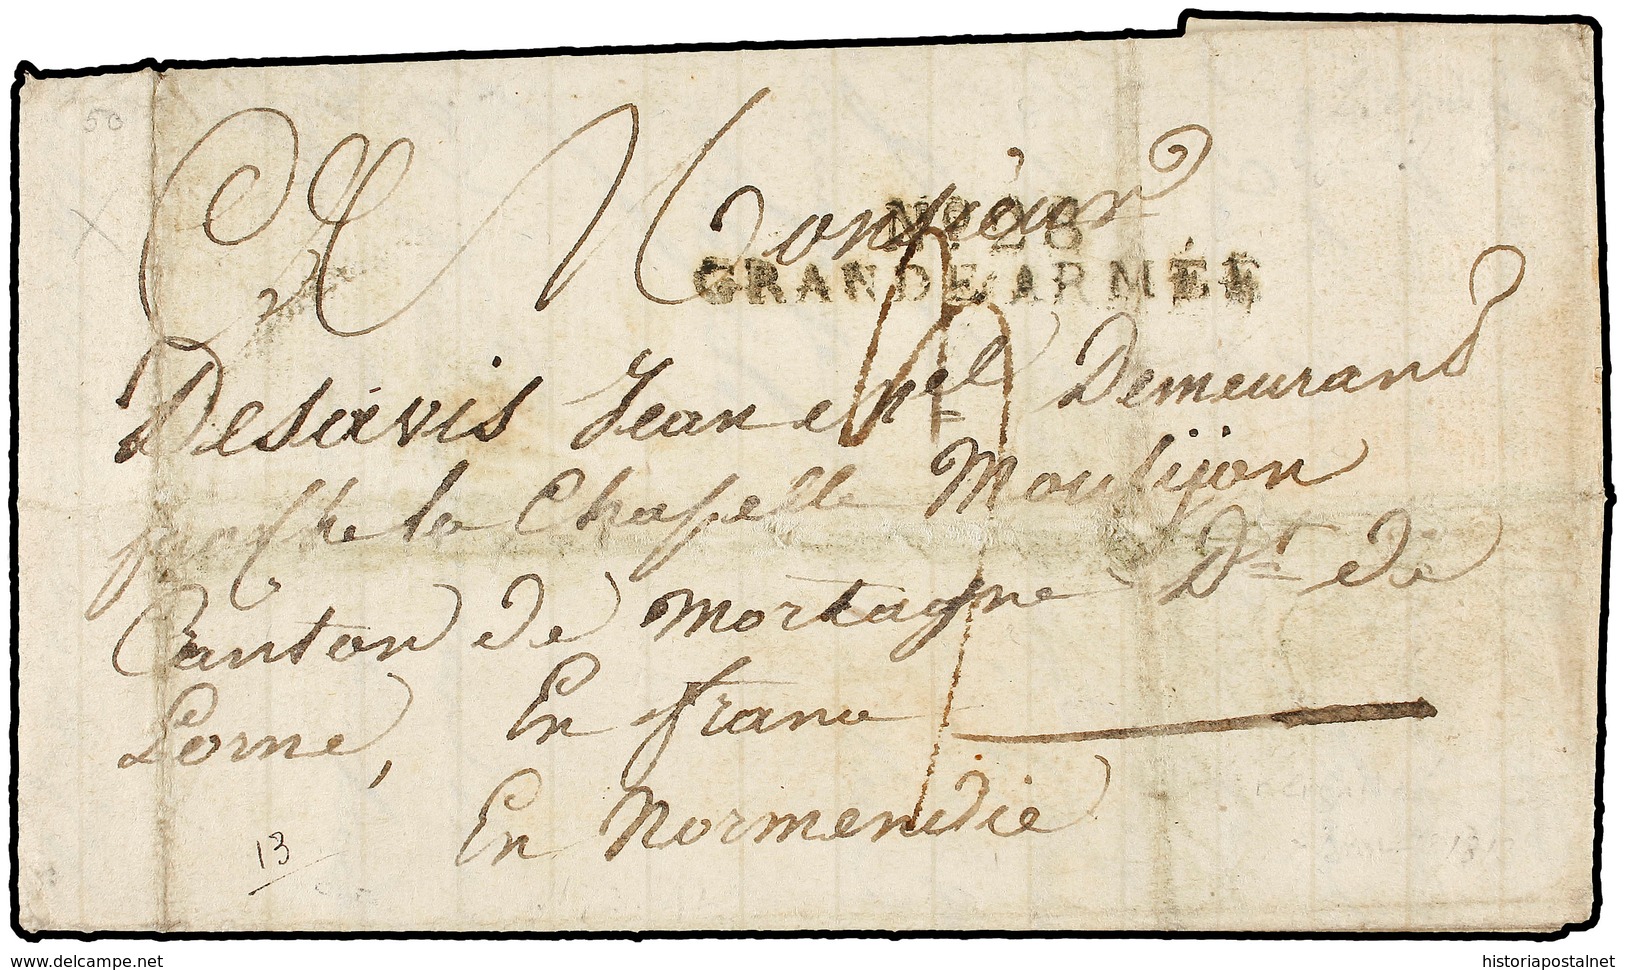 50
A Monsieur
N.º 28
GRANDE ARMÉE
Desavis Jean Demeurand
proche la Chapelle Monlijon
Canton de Mortagne D.t de
Lorne, En france
En Normendie
13
www.delcampe.net
historiapostalnet